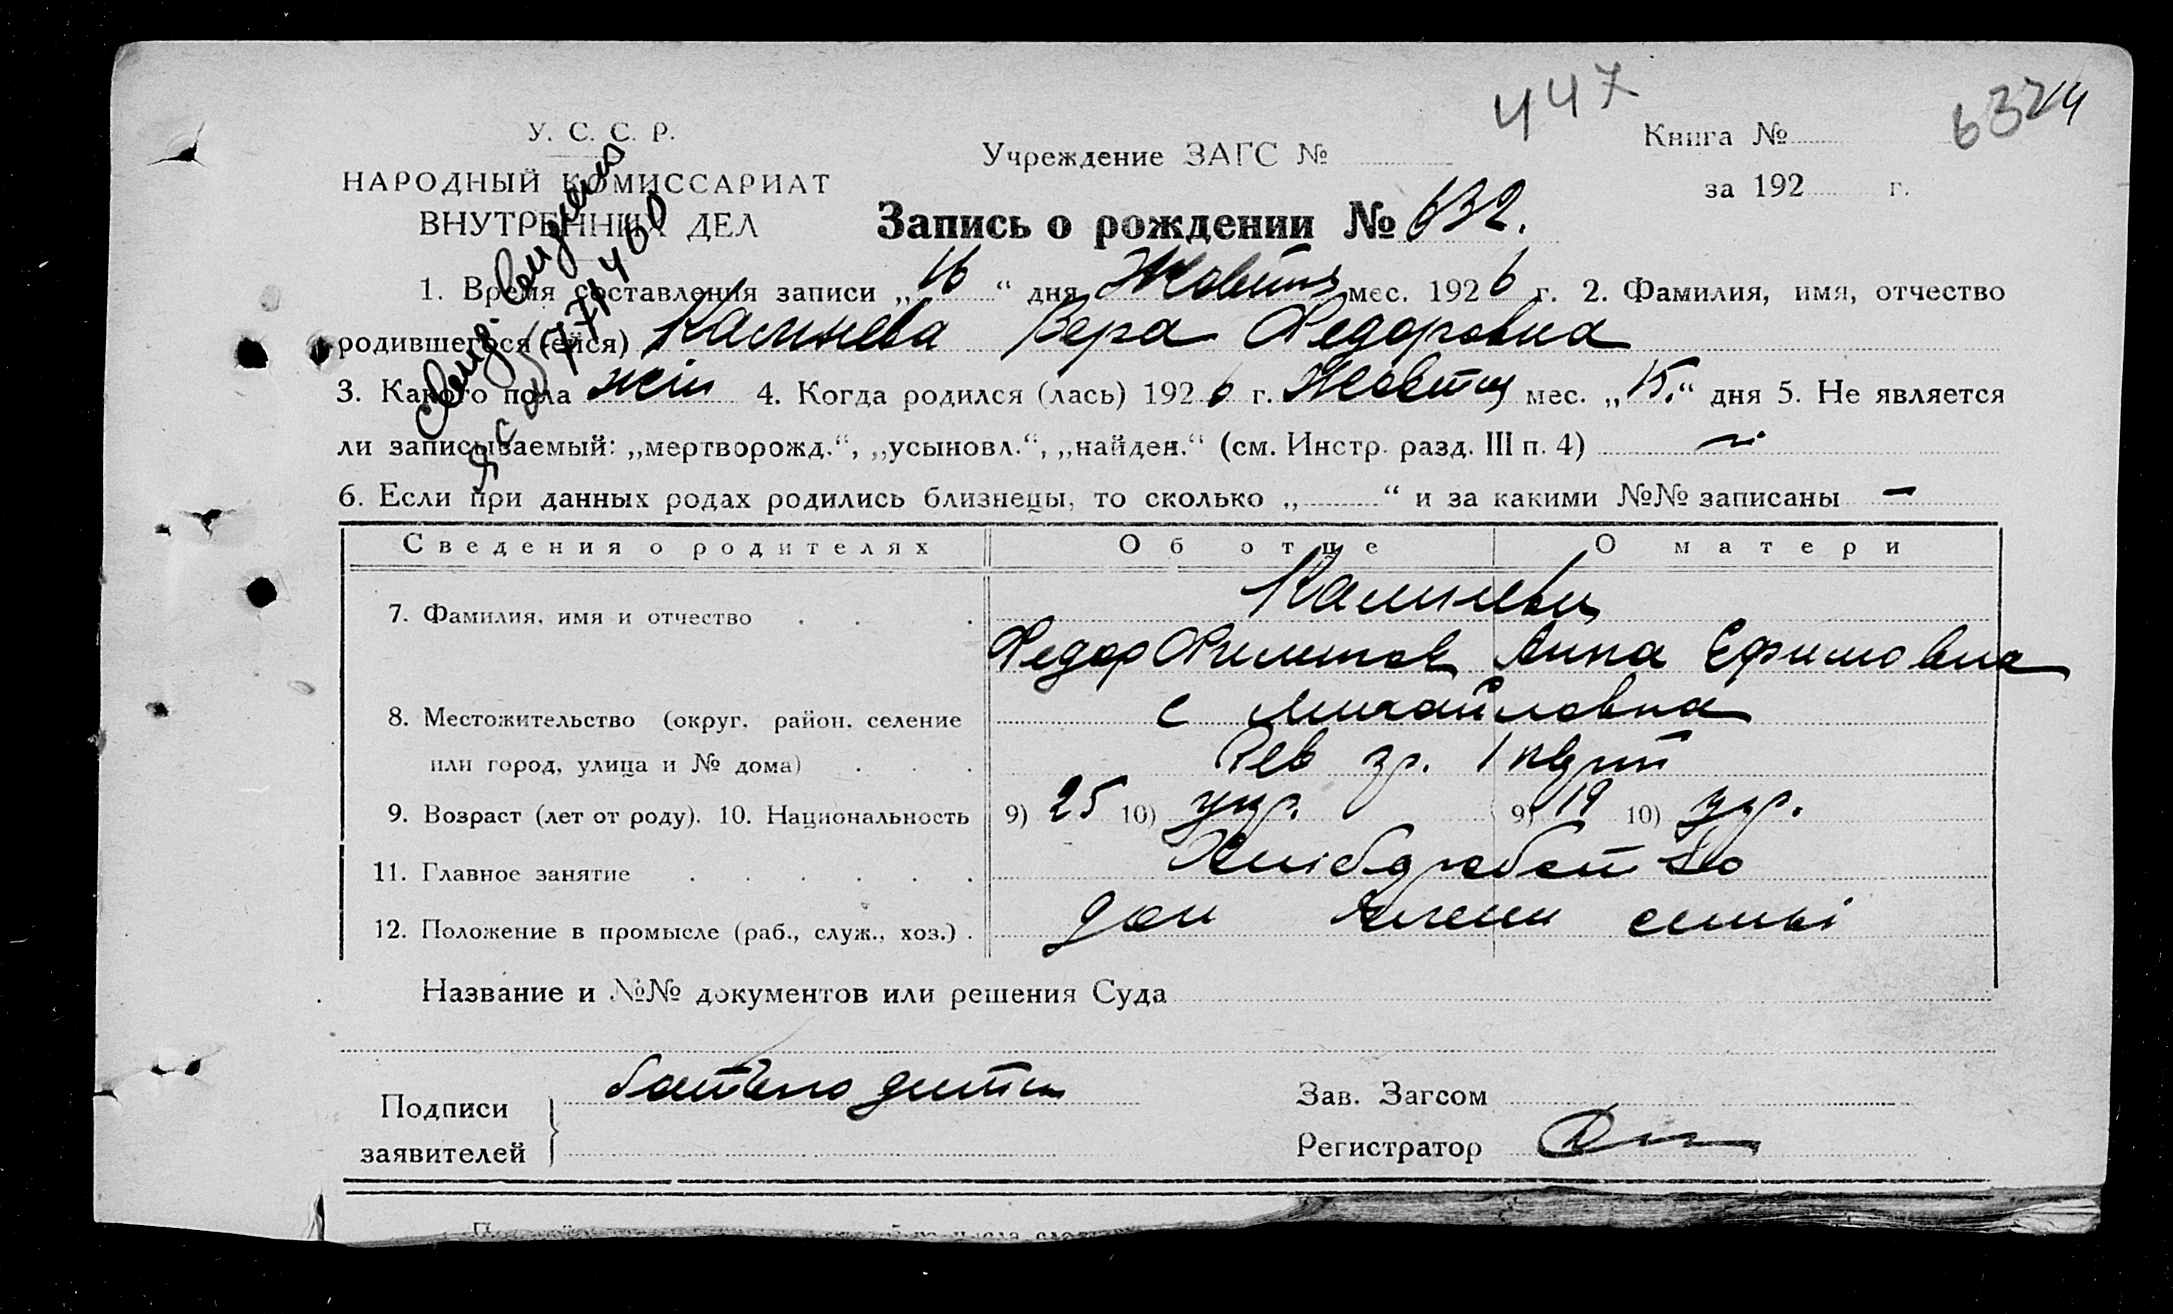 447
6324
У. С. С. Р.
НАРОДНЫЙ КОМИССАРИАТ
ВНУТРЕННИХ ДЕЛ
Учреждение ЗАГС №
Книга №
за 192 г.
Запись о рождении № 632.
1. Время составления записи „16“ дня Жовтня мес. 1926 г. 2. Фамилия, имя, отчество
родившегося (ейся) Калинева Вера Федоровна
3. Какого пола жін 4. Когда родился (лась) 1926 г. Жовтня мес. „15.“ дня 5. Не является
ли записываемый: „мертворожд.“, „усыновл.“, „найден.“ (см. Инстр. разд. III п. 4) ні
6. Если при данных родах родились близнецы, то сколько „ “ и за какими №№ записаны —
Сведения о родителях Об отце О матери
7. Фамилия, имя и отчество
Федор Филипов Анна Ефимовна
8. Местожительство (округ, район, селение с Михайловка
или город, улица и № дома)
9. Возраст (лет от роду). 10. Национальность 9) 25 10) укр. 9) 19 10) укр.
11. Главное занятие Хліборобство
12. Положение в промысле (раб., служ., хоз.) члени семьі
Название и №№ документов или решения Суда
Подписи
заявителей
батько дитини
Зав. Загсом
Регистратор